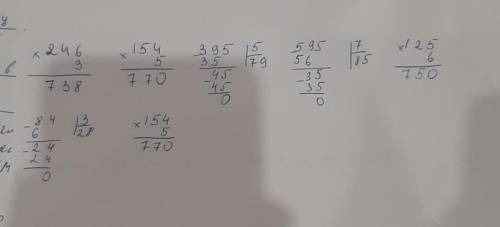 у
в × 246 × 154 395 | 5 595 | 7 × 125
3 5 35 79 56 85 6
738 770 - 45 - 35 750
45 35
0 0
- 84 | 3 × 154
6 28 5
- 24 770
м 24
0